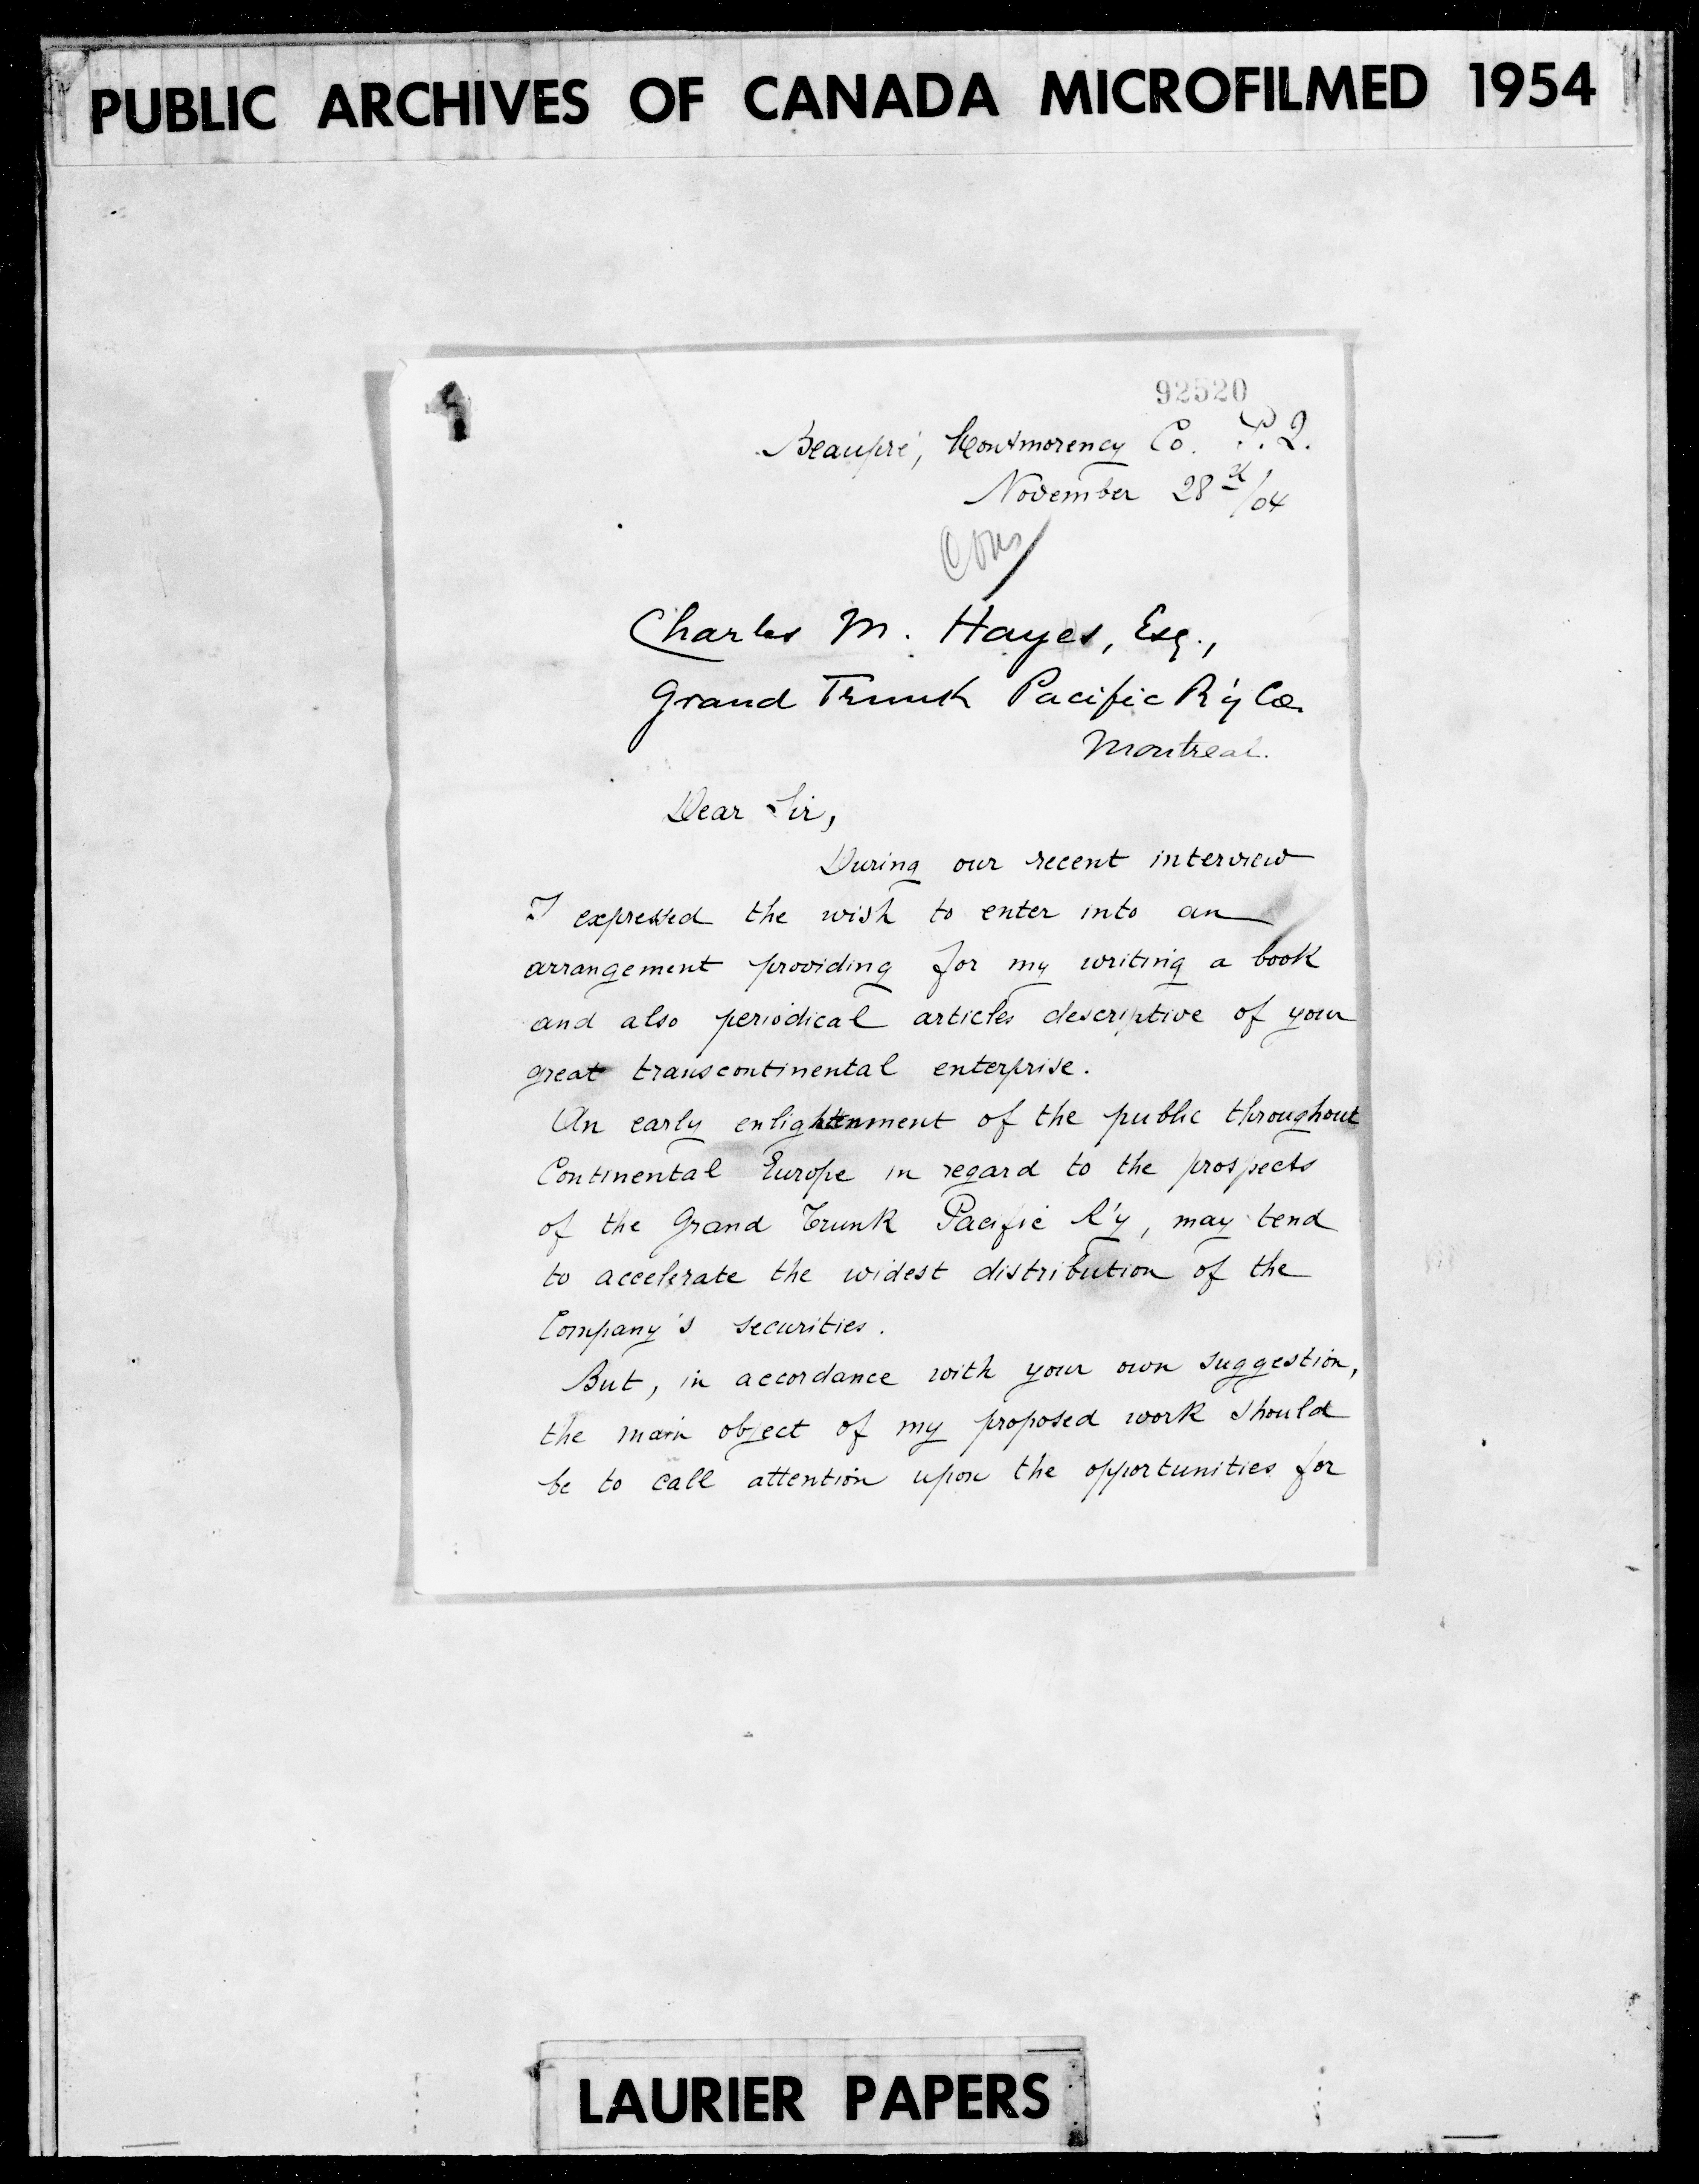 PUBLIC ARCHIVES OF CANADA MICROFILMED 1954
92520
Beaupré, Montmorency Co. P.Q.
November 28th/04
Charles M. Hayes, Esq.,
Grand Trunk Pacific R'y Co.
Montreal.
Dear Sir,
During our recent interview
I expressed the wish to enter into an
arrangement providing for my writing a book
and also periodical articles descriptive of your
great transcontinental enterprise.
An early enlightenment of the public throughout
Continental Europe in regard to the prospects
of the Grand Trunk Pacific R'y, may tend
to accelerate the widest distribution of the
Company's securities.
But, in accordance with your own suggestion,
the main object of my proposed work should
be to call attention upon the opportunities for
LAURIER PAPERS